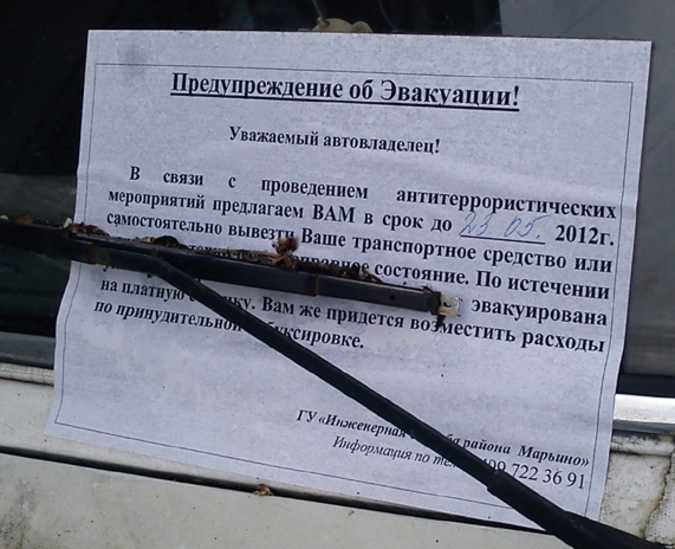 Предупреждение об Эвакуации!
Уважаемый автовладелец!
В связи с проведением антитеррористических
мероприятий предлагаем ВАМ в срок до 23.05. 2012г.
самостоятельно вывезти Ваше транспортное средство или
состояние. По истечении
эвакуирована
на платную Вам же придется возместить расходы
по принудительной
ГУ «Инженерная района Марьино»
Информация по 722 36 91